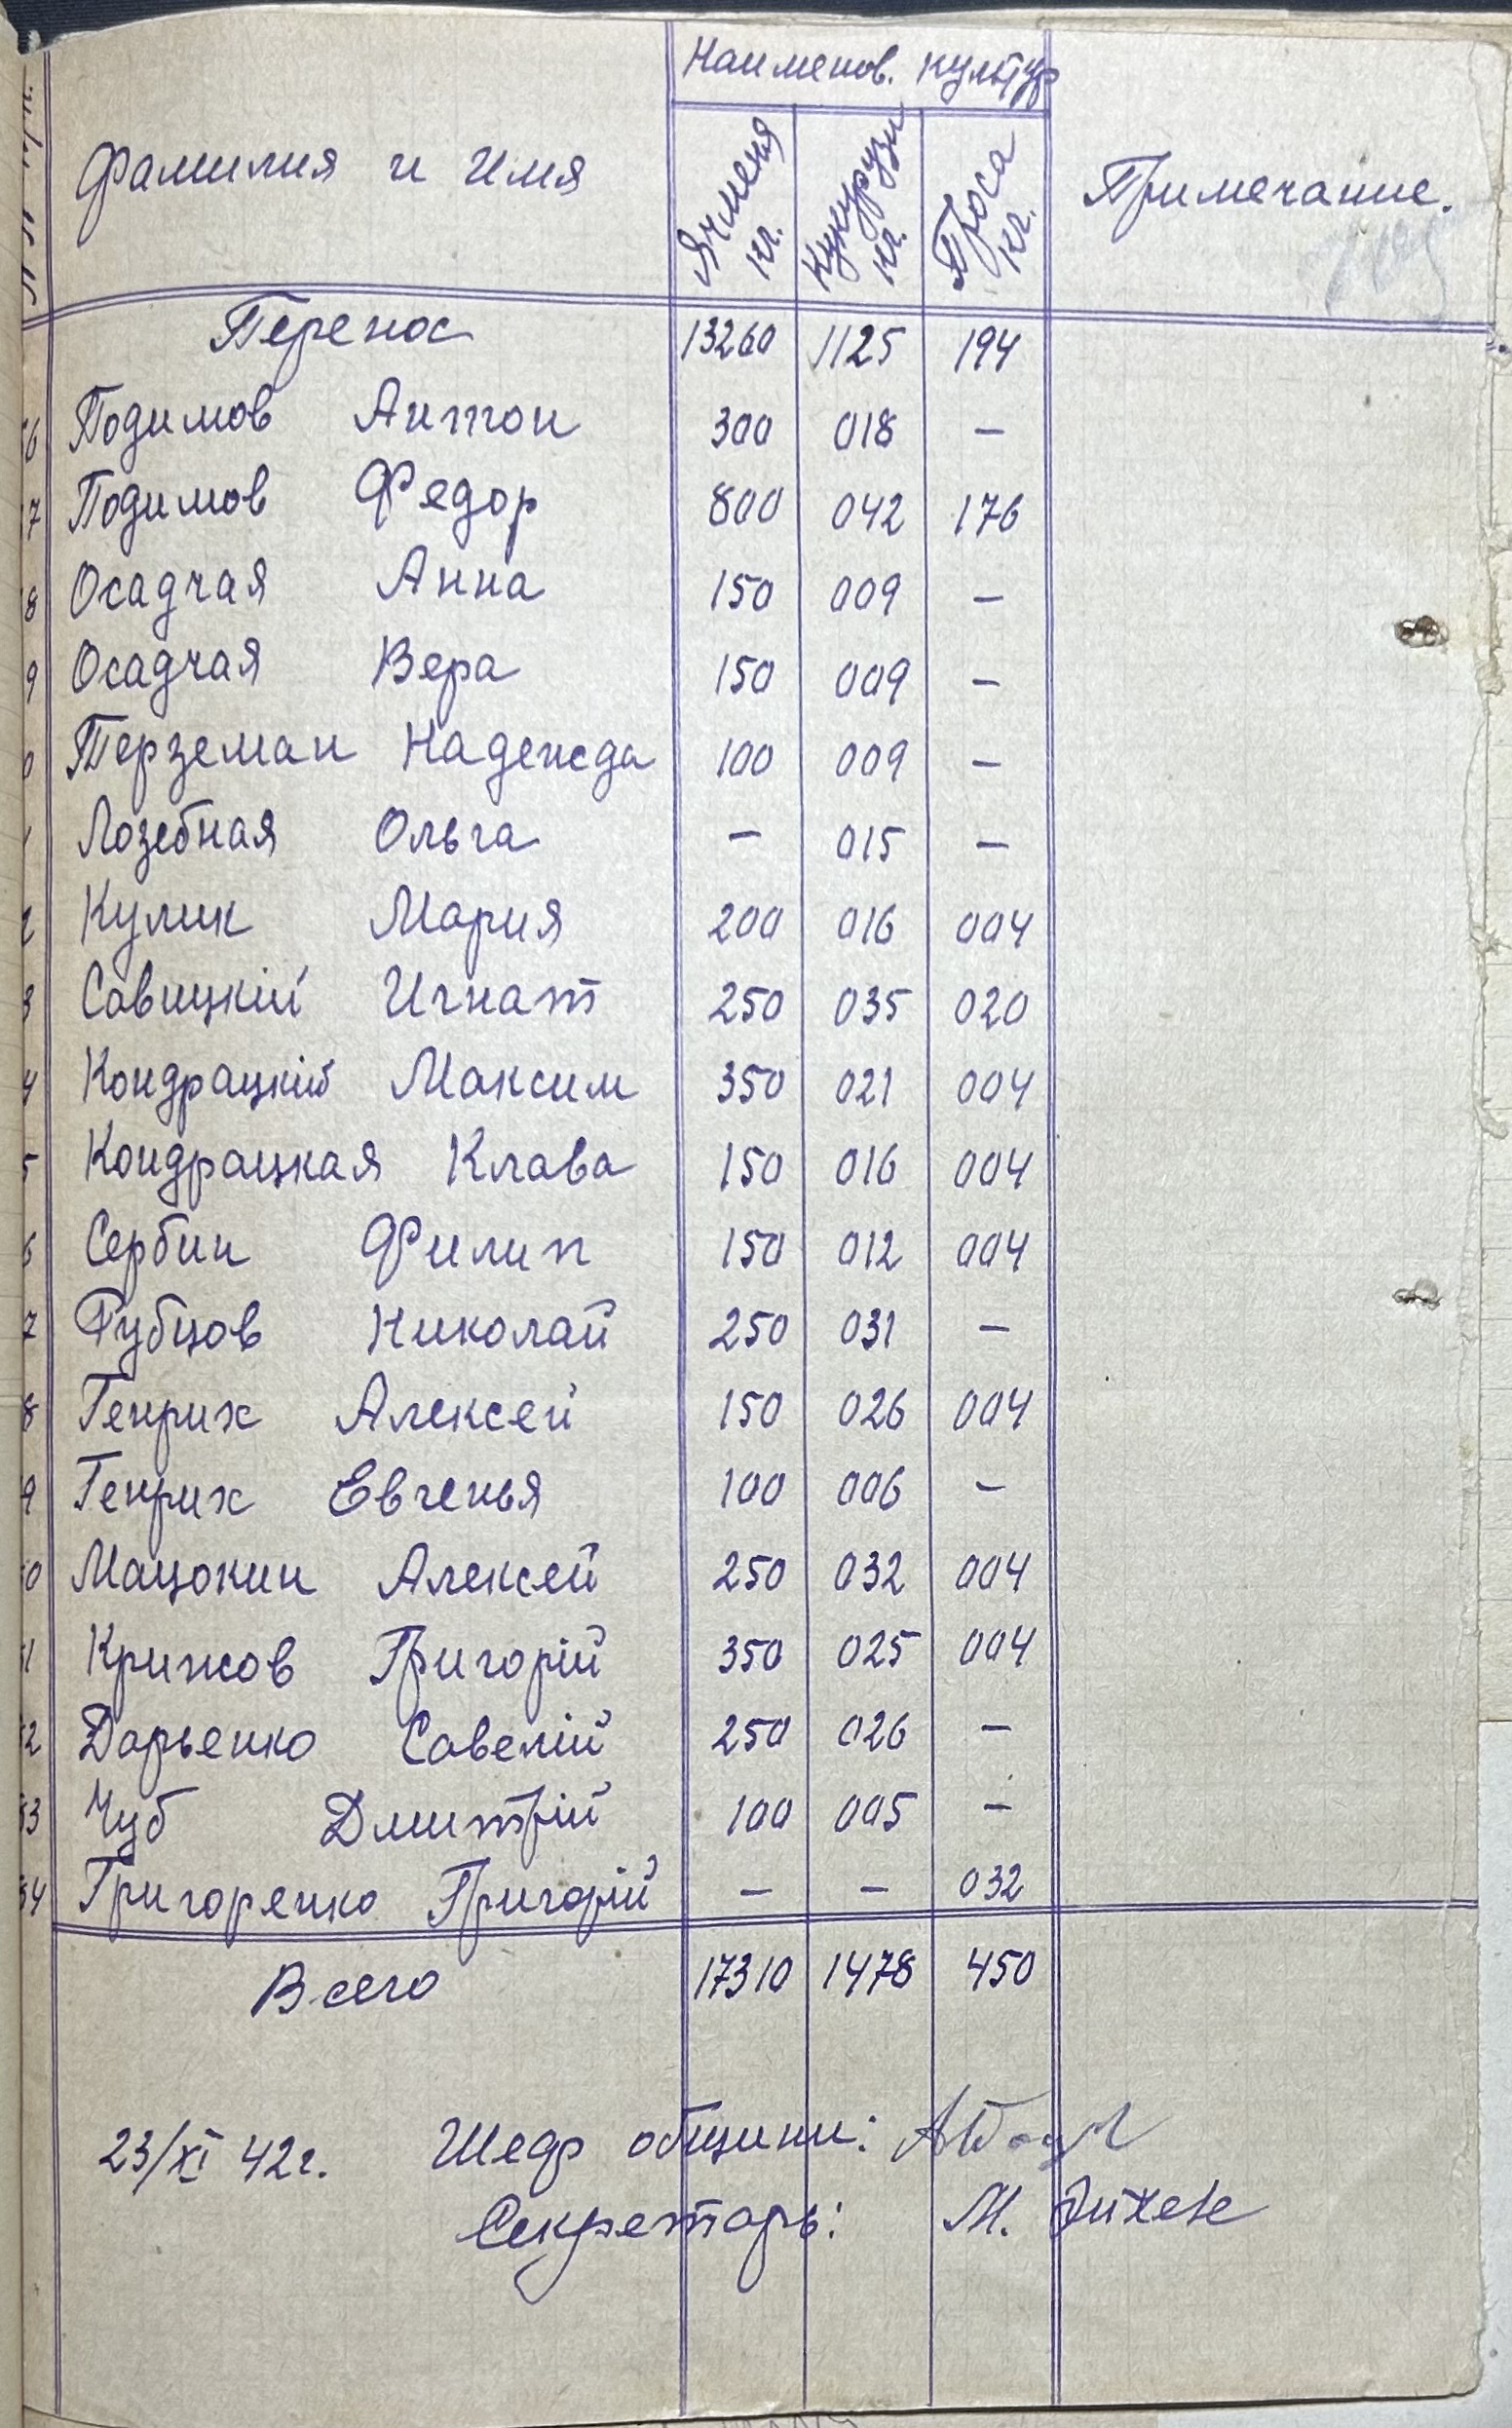 Наименов. культур
Фамилия и Имя Ячменя кг. Кукурузи кг. Проса кг. Примечание.
Перенос 13260 1125 194
Подимов Антон 300 018 —
7 Подимов Федор 800 042 176
8 Осадчая Анна 150 009 —
9 Осадчая Вера 150 009 —
0 Терземан Надежда 100 009 —
Лозебная Ольга — 015 —
Кулик Мария 200 016 004
Савицкій Игнат 250 035 020
4 Кондрацкій Максим 350 021 004
5 Кондрацкая Клава 150 016 004
6 Сербин Филип 150 012 004
7 Рубцов Николай 250 031 —
8 Генрих Алексей 150 026 004
9 Генрих Евгенья 100 006 —
0 Мацокин Алексей 250 032 004
1 Крижов Григорій 350 025 004
2 Дарьенко Савелій 250 026 —
3 Чуб Дмитрій 100 005 —
4 Григоренко Григорій — — 032
Всего 17310 1478 450
23/XI 42г. Шеф общини:
Секретарь: М.